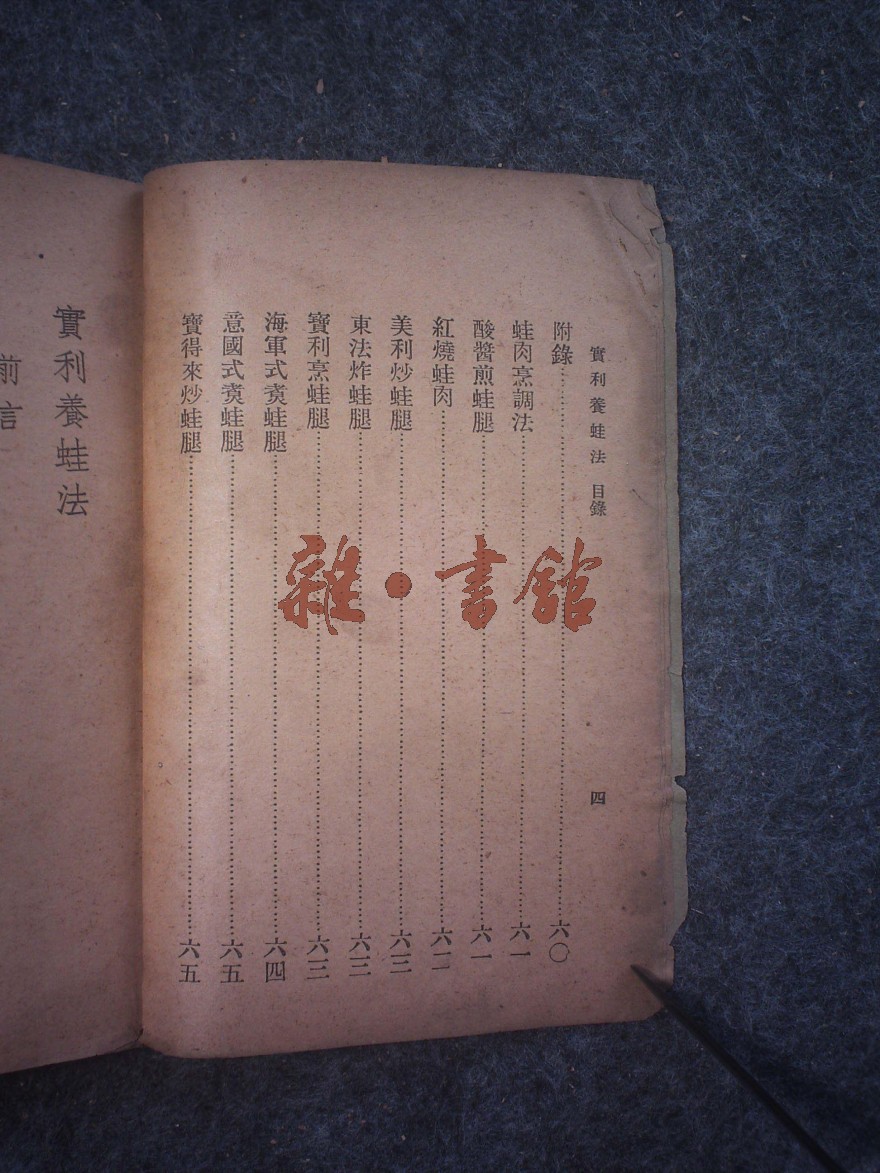 實利養蛙法 目錄 四
附錄⋯⋯六〇
蛙肉烹調法⋯⋯六一
酸醬煎蛙腿⋯⋯六一
紅燒蛙肉⋯⋯六二
美利炒蛙腿⋯⋯六三
東法炸蛙腿⋯⋯六三
寶利烹蛙腿⋯⋯六三
海軍式煑蛙腿⋯⋯六四
意國式煑蛙腿⋯⋯六五
寶得來炒蛙腿⋯⋯六五
實利養蛙法
前言
雜·書館